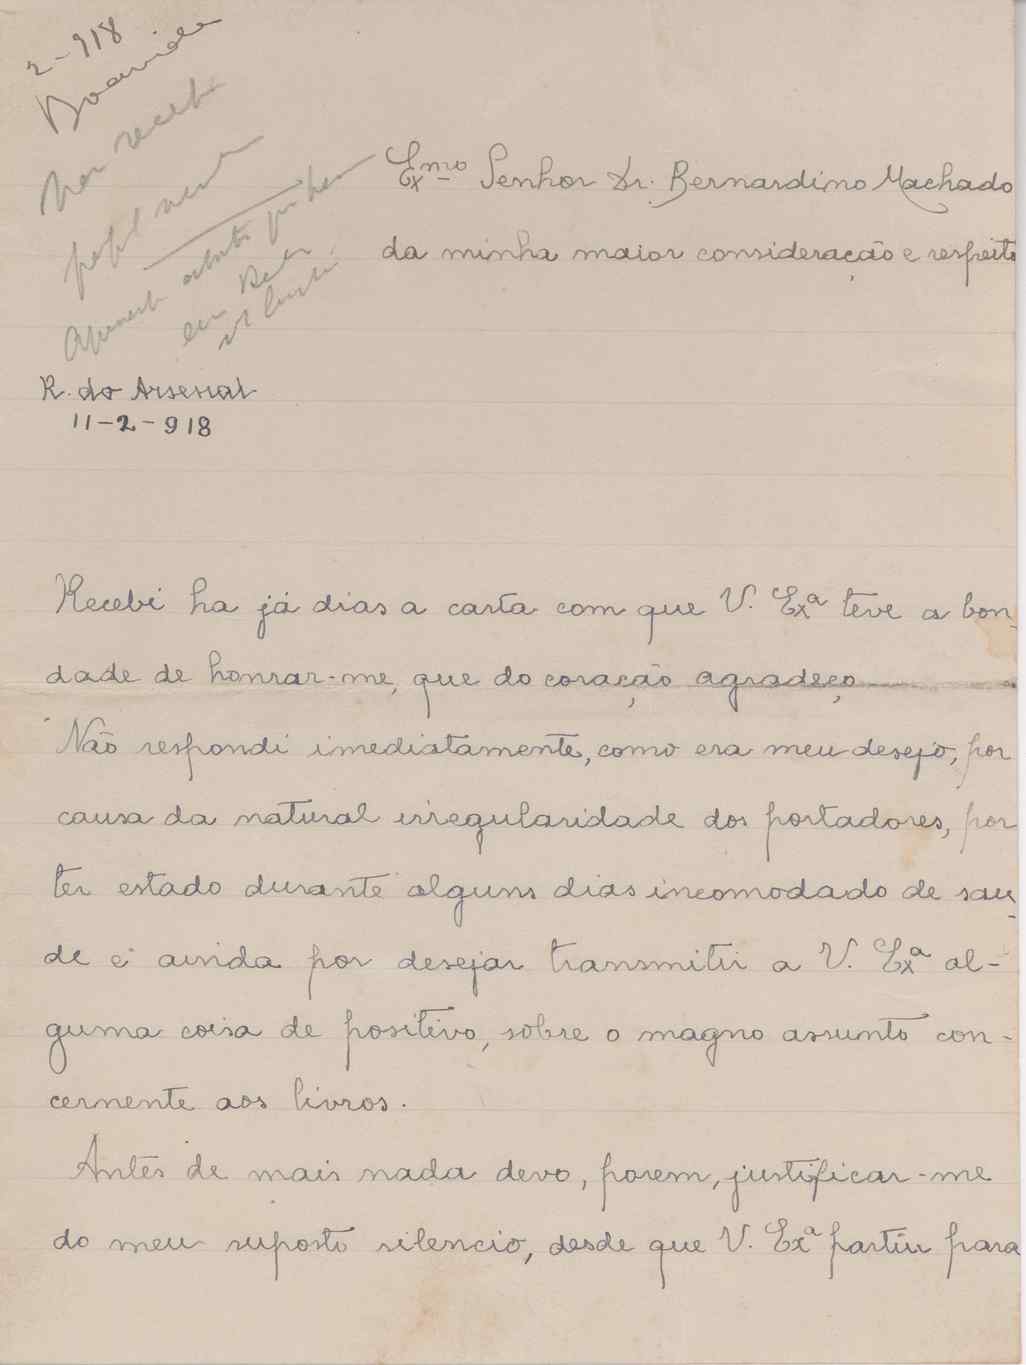 2-918
Não recebi
Exmo Senhor Dr. Bernardino Machado
da minha maior consideração e respeito
R. do Arsenal
11-2-918
Recebi ha já dias a carta com que V. Exª teve a bon-
dade de honrar-me, que do coração agradeço
Não respondi imediatamente, como era meu desejo, por
causa da natural irregularidade dos portadores, por
ter estado durante alguns dias incomodado de sau-
de e ainda por desejar transmitir a V. Exª al-
guma coisa de positivo, sobre o magno assunto con-
cernente aos livros.
Antes de mais nada devo, porem, justificar-me
do meu suposto silencio, desde que V. Exª partiu para